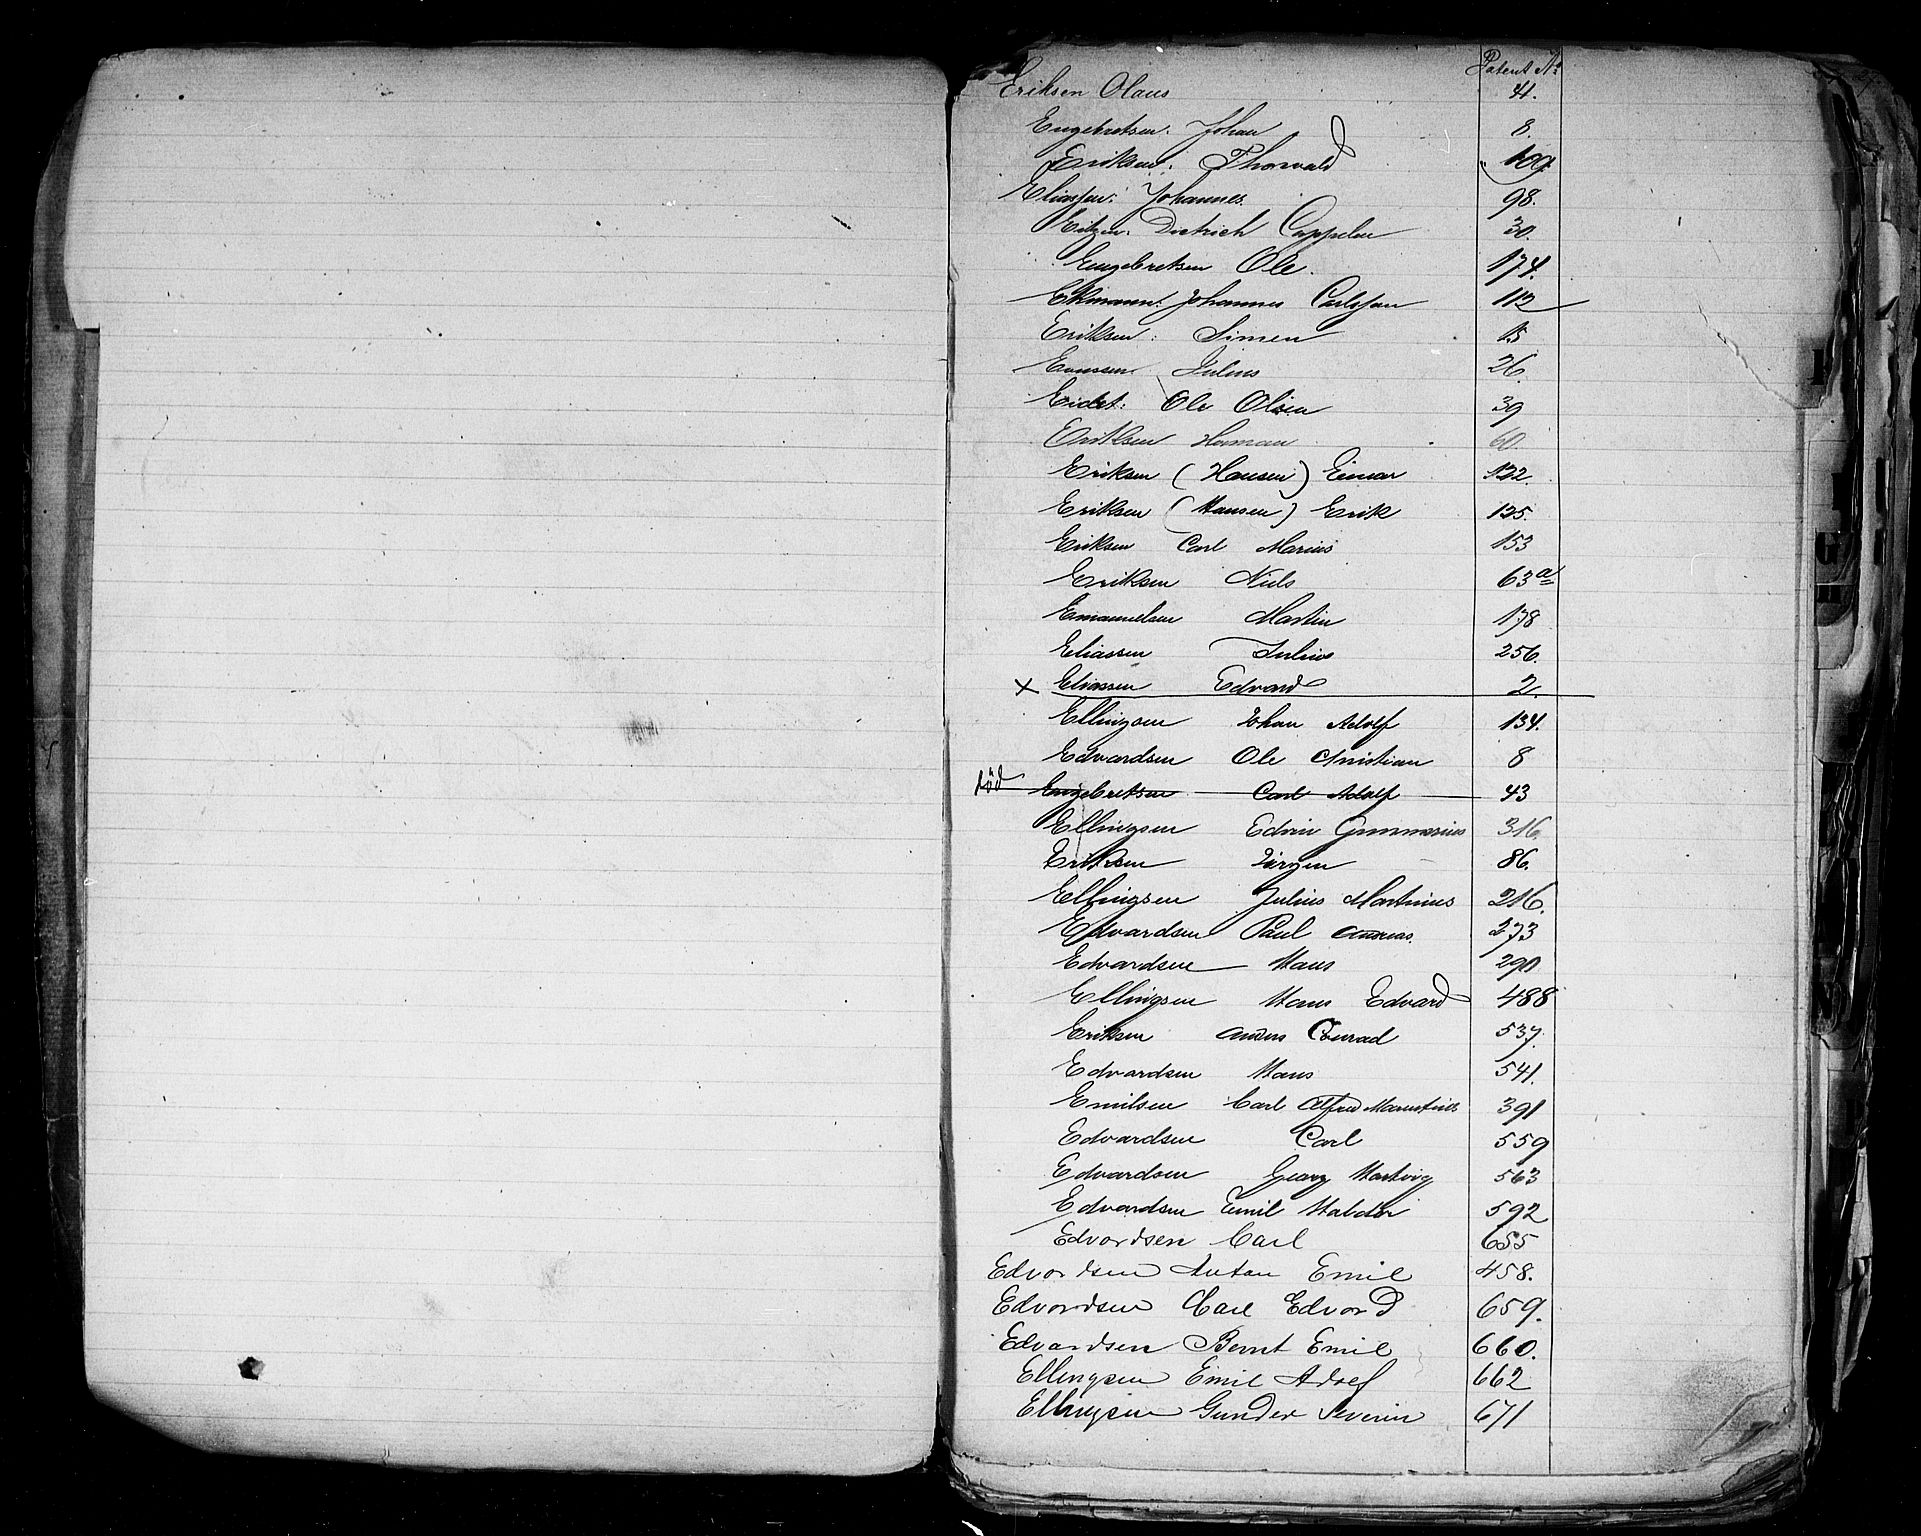 Patent No
Eriksen Olaus 41.
Engebretsen: Johan 8.
Eriksen: Thorvald 109.
Eliassen: Johannes 98.
Eitzen: Dietrich Cappelen 30.
Engebretsen Ole. 174.
Ekmann: Johannes Carlssen 112
Eriksen: Simen 15
Evensen Julius 26.
Eidet: Ole Olsen 39
Eriksen Herman 60
Eriksen (Hansen) Einar 122.
Eriksen (Hansen) Erik 125.
Eriksen Carl Marius 153
Eriksen Niels 63a
Emanuelsen Martin 178
Eliassen Julius 256.
x Eliassen Edvard 2.
Ellingsen Johan Adolf 134.
Edvardsen Ole Christian 8
död Engebretsen Carl Adolf 43
Ellingsen Edvin Gunmarius 316.
Eriksen Jörgen 86.
Ellingsen Julius Martinius 216.
Edvardsen Paul Andreas. 273
Edvardsen Hans 290
Ellingsen Hans Edvard 488
Eriksen Anders Conrad 537.
Edvardsen Hans 541.
Emilsen Carl Alfred 391
Edvardsen Carl 559
Edvardsen Georg Hartvig 563
Edvardsen Emil Haldor 592
Edvardsen Carl 655
Edvardsen Anton Emil 458.
Edvardsen Carl Edvard 659.
Edvardsen Bernt Emil 660.
Ellingsen Emil Adolf 662
Ellingsen Gunder Severin 671